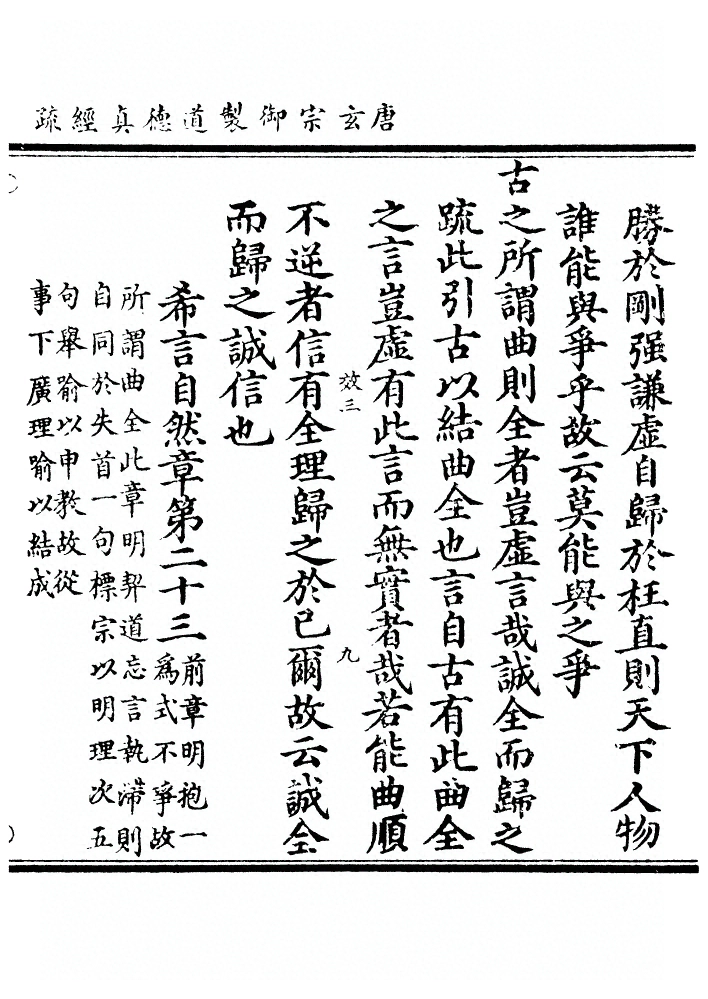 唐玄宗御製道德真經疏
勝於剛强謙虚自歸於枉直則天下人物
誰能與爭乎故云莫能與之爭
古之所謂曲則全者豈虚言哉誠全而歸之
疏此引古以結曲全也言自古有此曲全
之言豈虚有此言而無實者哉若能曲順
效三
九
不逆者信有全理歸之於已爾故云誠全
而歸之誠信也
希言自然章第二十三
前章明抱一
爲式不爭故
所謂曲全此章明契道忘言執滯則
自同於失首一句標宗以明理次五
句舉喻以申教故從
事下廣理喻以結成